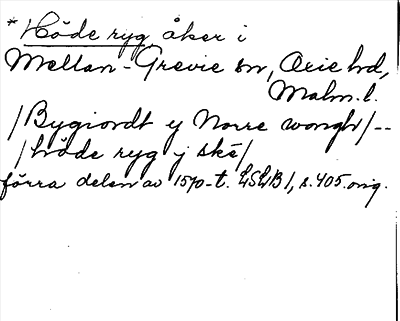 *Höde ryg åker i
Mellan-Grevie sn, Oxie hd,
Malm.l.
/Bygiordt y Norre wongh/--
/höde ryg y ské/
förra delen av 1570-t. LSLB 1, s.405.orig.